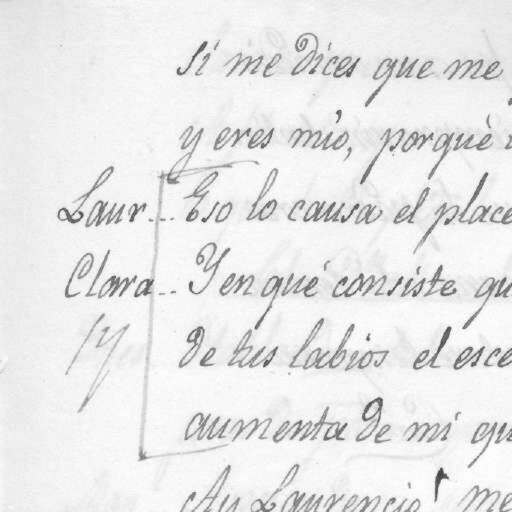 si me dices que me
y eres mío, porquè
Laur... Eso lo causa el place
Clara... Y en qué consiste qu
de tus labios el esce
aumenta de mi qu
Ay Laurencio! me